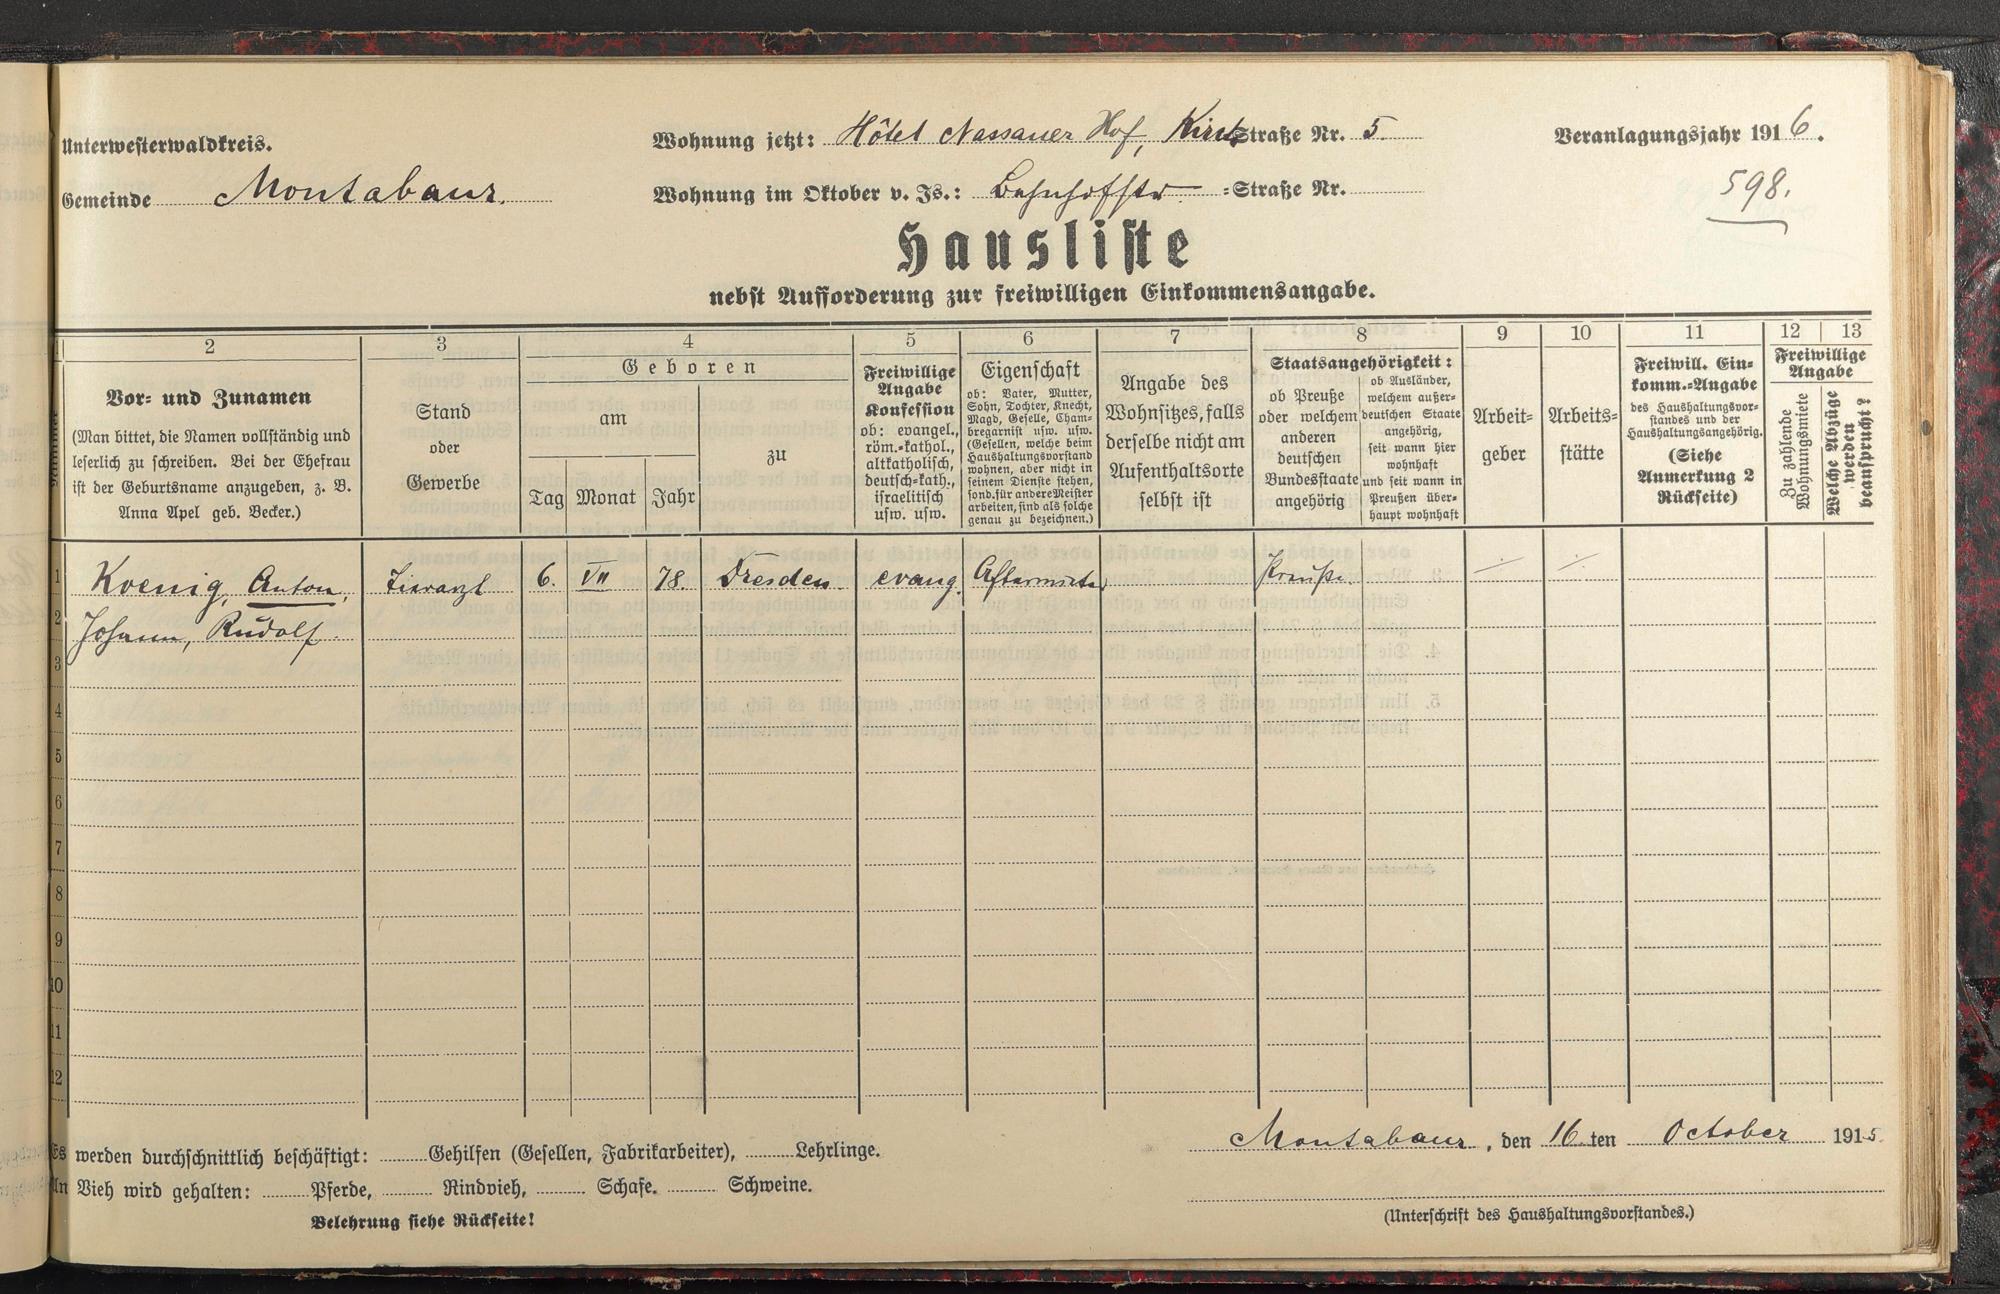 Unterwesterwaldkreis.
Gemeinde Montabaur.
Wohnung jetzt: Hôtel Nassauer Hof, Kirch-Straße Nr. 5
Wohnung im Oktober v. Js.: Bahnhofstr =Straße Nr.
Veranlagungsjahr 1916.
598.
Hausliste
nebst Aufforderung zur freiwilligen Einkommensangabe.
2 3 4 5 6 7 8 9 10 11 12 13
Nummer
Vor- und Zunamen
(Man bittet, die Namen vollständig und
leserlich zu schreiben. Bei der Ehefrau
ist der Geburtsname anzugeben, z. B.
Anna Apel geb. Becker.)
Stand
oder
Gewerbe
Geboren
am
Tag Monat Jahr
zu
Freiwillige
Angabe
Konfession
ob: evangel.,
röm.-kathol.,
altkatholisch,
deutsch-kath.,
israelitisch
usw. usw.
Eigenschaft
ob: Vater, Mutter,
Sohn, Tochter, Knecht,
Magd, Geselle, Cham-
bregarnist usw. usw.
(Gesellen, welche beim
Haushaltungsvorstand
wohnen, aber nicht in
seinem Dienste stehen,
sond. für andere Meister
arbeiten, sind als solche
genau zu bezeichnen.)
Angabe des
Wohnsitzes, falls
derselbe nicht am
Aufenthaltsorte
selbst ist
Staatsangehörigkeit:
ob Preuße
oder welchem
anderen
deutschen
Bundesstaate
angehörig
ob Ausländer,
welchem außer-
deutschen Staate
angehörig,
seit wann hier
wohnhaft
und seit wann in
Preußen über-
haupt wohnhaft
Arbeit-
geber
Arbeits-
stätte
Freiwill. Ein-
komm.-Angabe
des Haushaltungsvor-
standes und der
Haushaltungsangehörig.
(Siehe
Anmerkung 2
Rückseite)
Freiwillige
Angabe
Zu zahlende
Wohnungsmiete
Welche Abzüge
werden
beansprucht?
1 Koenig, Anton, Tierarzt 6. VII 78. Dresden. evang. Aftermieter Preuße.
2 Johann, Rudolf.
3
4
5
6
7
8
9
10
11
12
Es werden durchschnittlich beschäftigt: Gehilfen (Gesellen, Fabrikarbeiter), Lehrlinge.
An Vieh wird gehalten: Pferde, Rindvieh, Schafe. Schweine.
Belehrung siehe Rückseite!
Montabaur, den 16ten October 1915.
(Unterschrift des Haushaltungsvorstandes.)